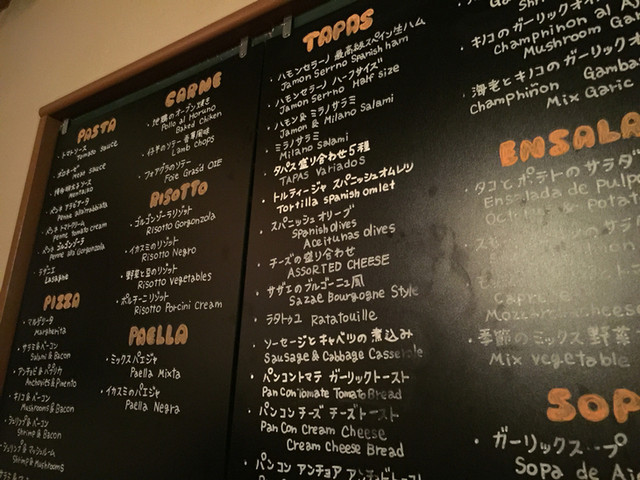 PASTA
・トマトソース
Tomato sauce
・ボロネーゼ
Meat sauce
mentaiko
・ペンネ アラビアータ
Penne allarrabbiata
・ペンネ トマトクリーム
Penne Tomato cream
・ペンネ ゴルゴンゾーラ
Penne alla Gorgonzola
・ラザニェ
Lasagne
PIZZA
・マルゲリータ
Margherita
・サラミ&ベーコン
Salami & Bacon
・アンチョビ&パプリカ
・キノコ&ベーコン
Mushrooms & Bacon
・シュリンプ&ベーコン
Shrimp & Bacon
・シュリンプ&マッシュルーム
Shrimp & Mushrooms
CARNE
・地鶏のオーブン焼き
Pollo al Horno
Baked Chiken
Lamb Chops
・フォアグラのソテー
RISOTTO
・ゴルゴンゾーラリゾット
Risotto Gorgonzola
・イカスミのリゾット
Risotto Negro
・野菜と豆のリゾット
Risotto Vegetables
・ポルチーニリゾット
Risotto Porcini Cream
PAELLA
・ミックスパエジャ
Paella Mixta
・イカスミのパエジャ
Paella Negra
TAPAS
・ハモンセラーノ 最高級スペイン生ハム
Jamon Serrno Spanish ham
・ハモンセラーノ ハーフサイズ
Jamon Serrno Half size
・ハモン&ミラノサラミ
Jamon & Milano Salami
・ミラノサラミ
Milano Salami
・タパス盛り合わせ5種
TAPAS Variados
・トルティージャ スパニッシュオムレツ
Tortilla spanish omlet
・スパニッシュオリーブ
Spanish olives
Aceitunas olives
・チーズの盛り合わせ
ASSORTED CHEESE
・サザエのブルゴーニュ風
Sazae Bourgogne Style
・ラタトゥユ Ratatouille
・ソーセージとキャベツの煮込み
Sausage & Cabbage Casserole
・パンコントマテ ガーリックトースト
Pan Con Tomate Tomato Bread
・パンコン チーズ チーズトースト
Pan Con Cream Cheese
Cream Cheese Bread
・パンコン アンチョア アンチョビトースト
・キノコのガーリックオ
Champhinon al Aj
Mushroom Ga
・海老とキノコのガーリックオ
Champhiñon Gamba
Mix Garic
ENSALA
・タコとポテトのサラダ
Ensalada de Pulpo
potat
Capre
Mozzarella cheese
・季節のミックス野菜
Mix vegetable
SOP
・ガーリックス プ
Sopa de Aj